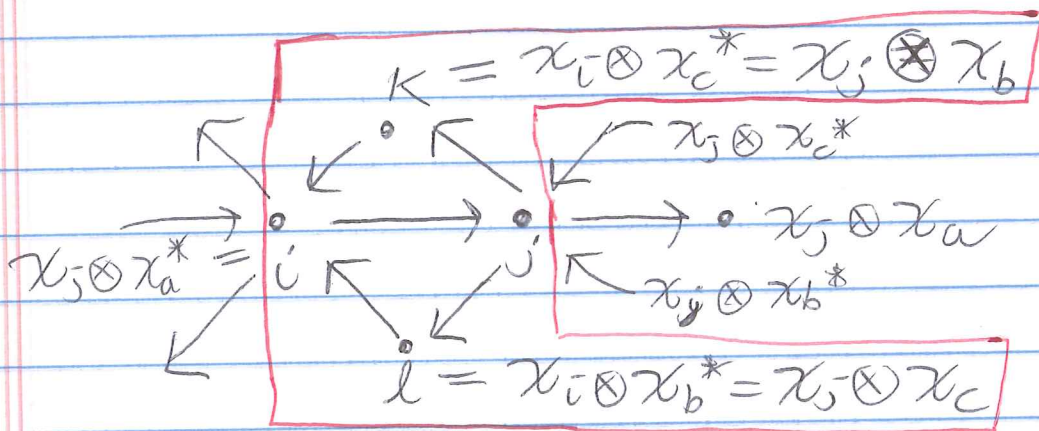 K = x_i ⊗ x_c^* = x_j ⊗ x_b
x_j ⊗ x_c^*
x_j ⊗ x_a^* = i j x_j ⊗ x_a
x_j ⊗ x_b^*
l = x_i ⊗ x_b^* = x_j ⊗ x_c